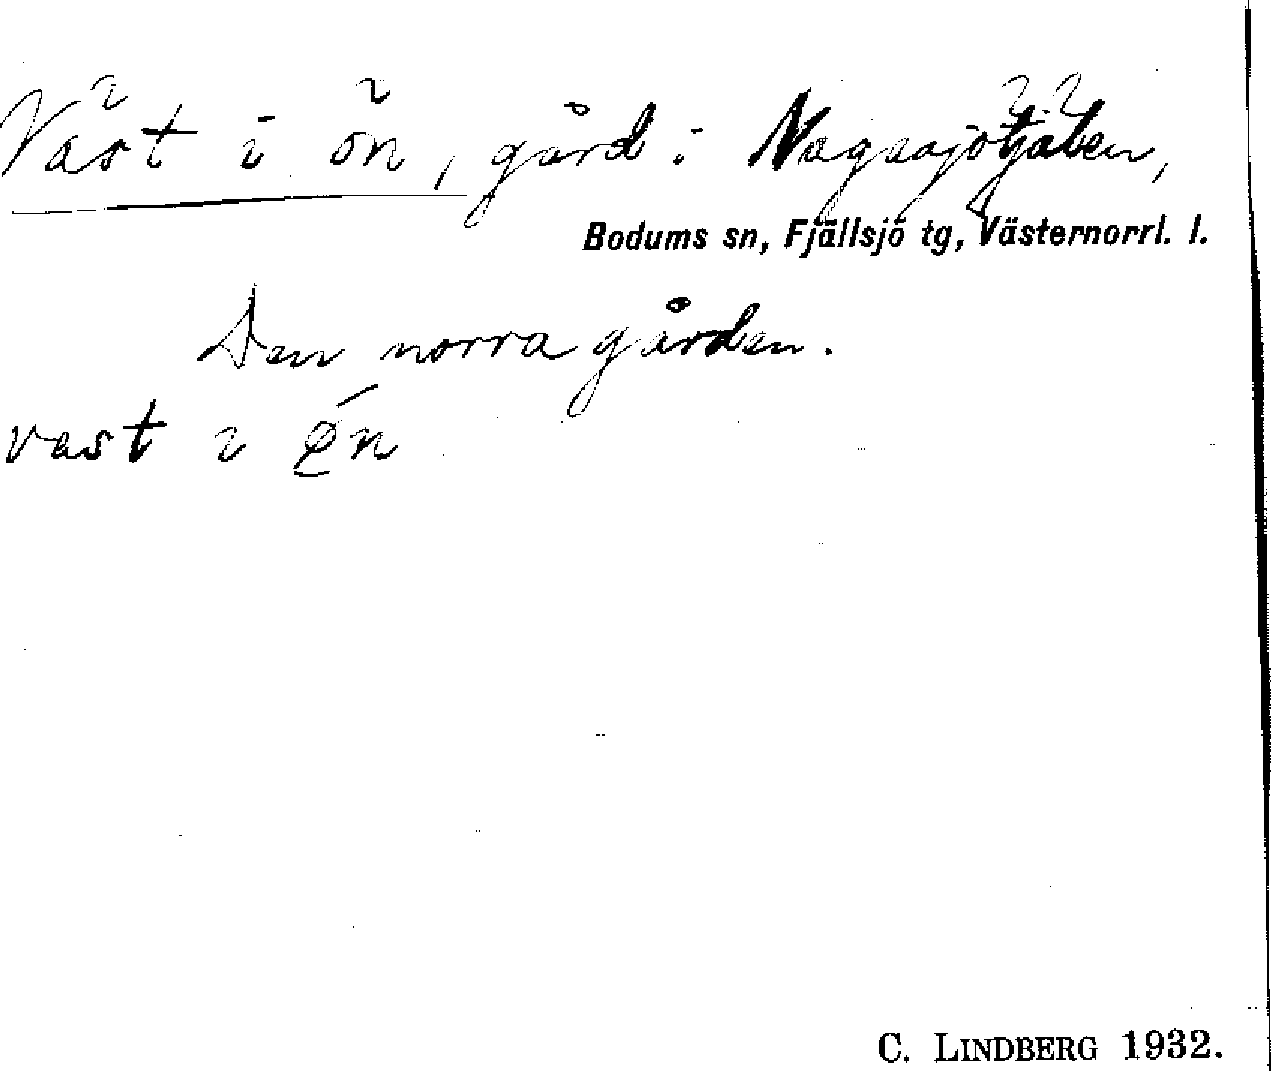 Väst i ön, gård i Nagasjötjälen,
Bodums sn, Fjällsjö tg, Västernorrl. l.
Den norra gården.
vast i øn
C. LINDBERG 1932.